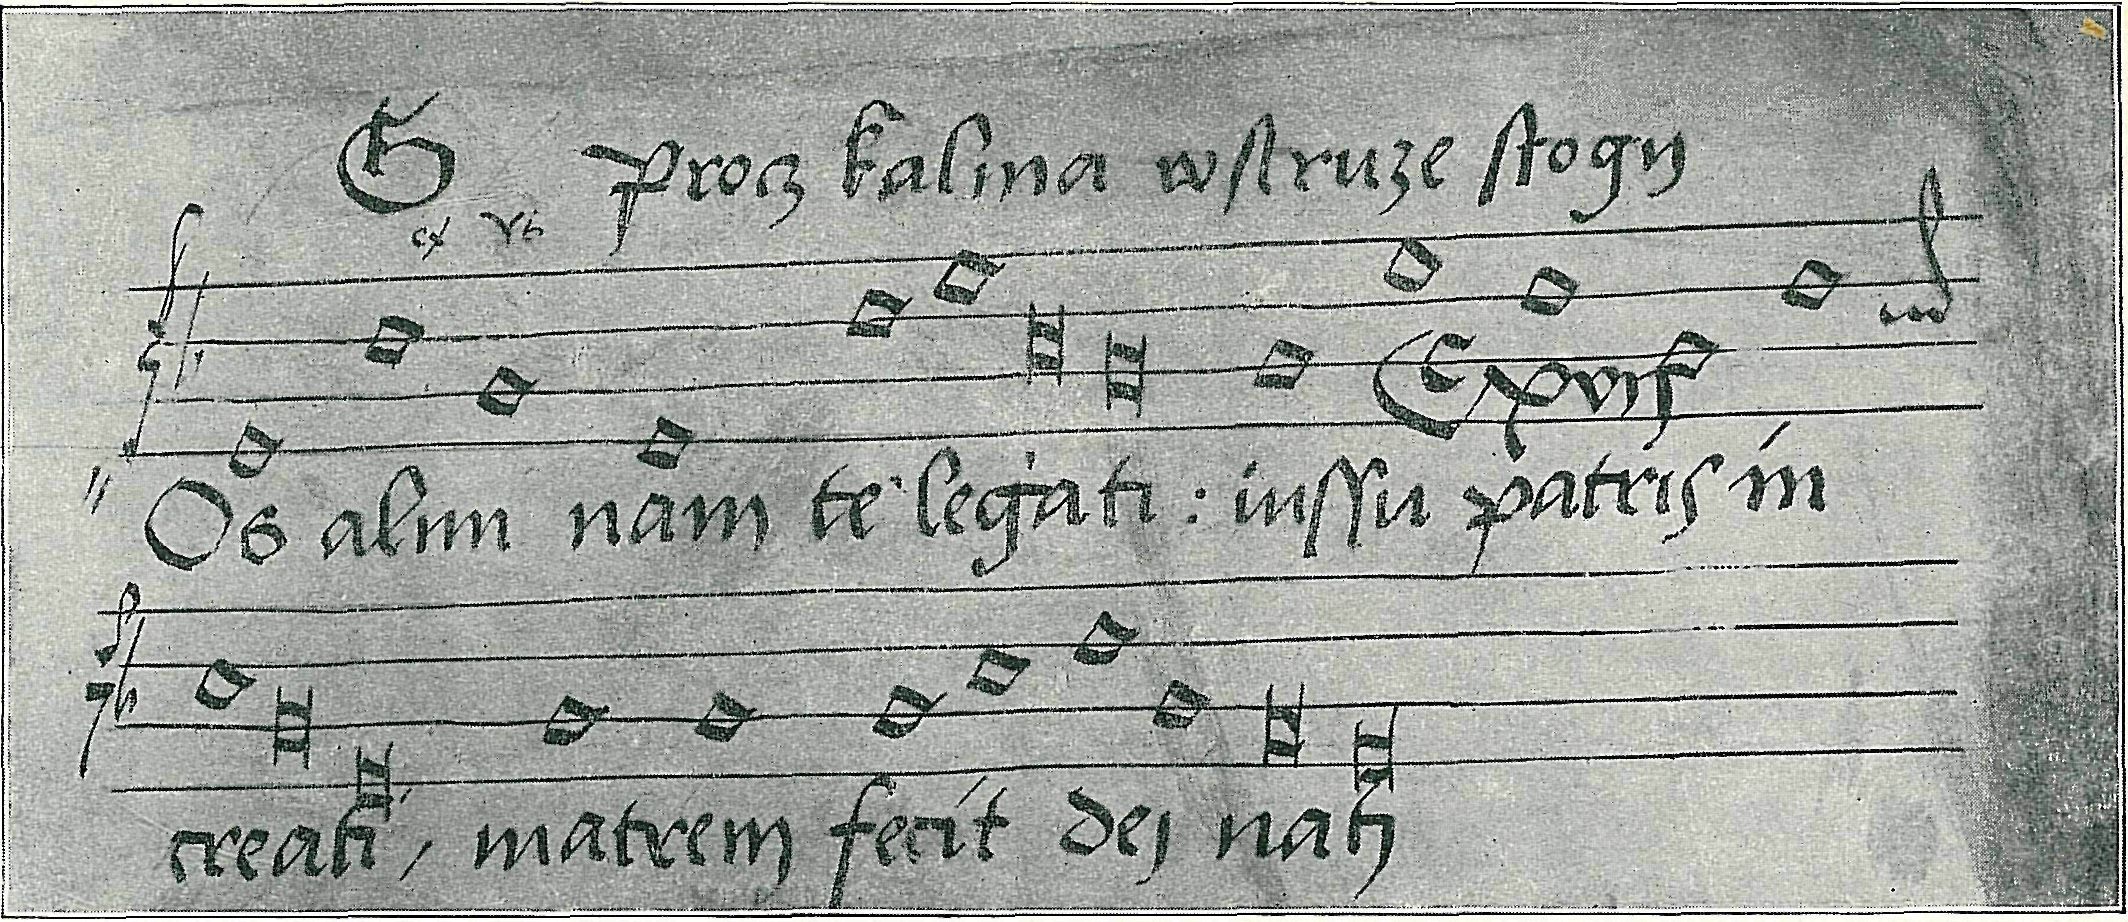 procz kalina wstruze stogy
Os almi nam te legati : iussu patris in
creati, matrem fecit dej nati